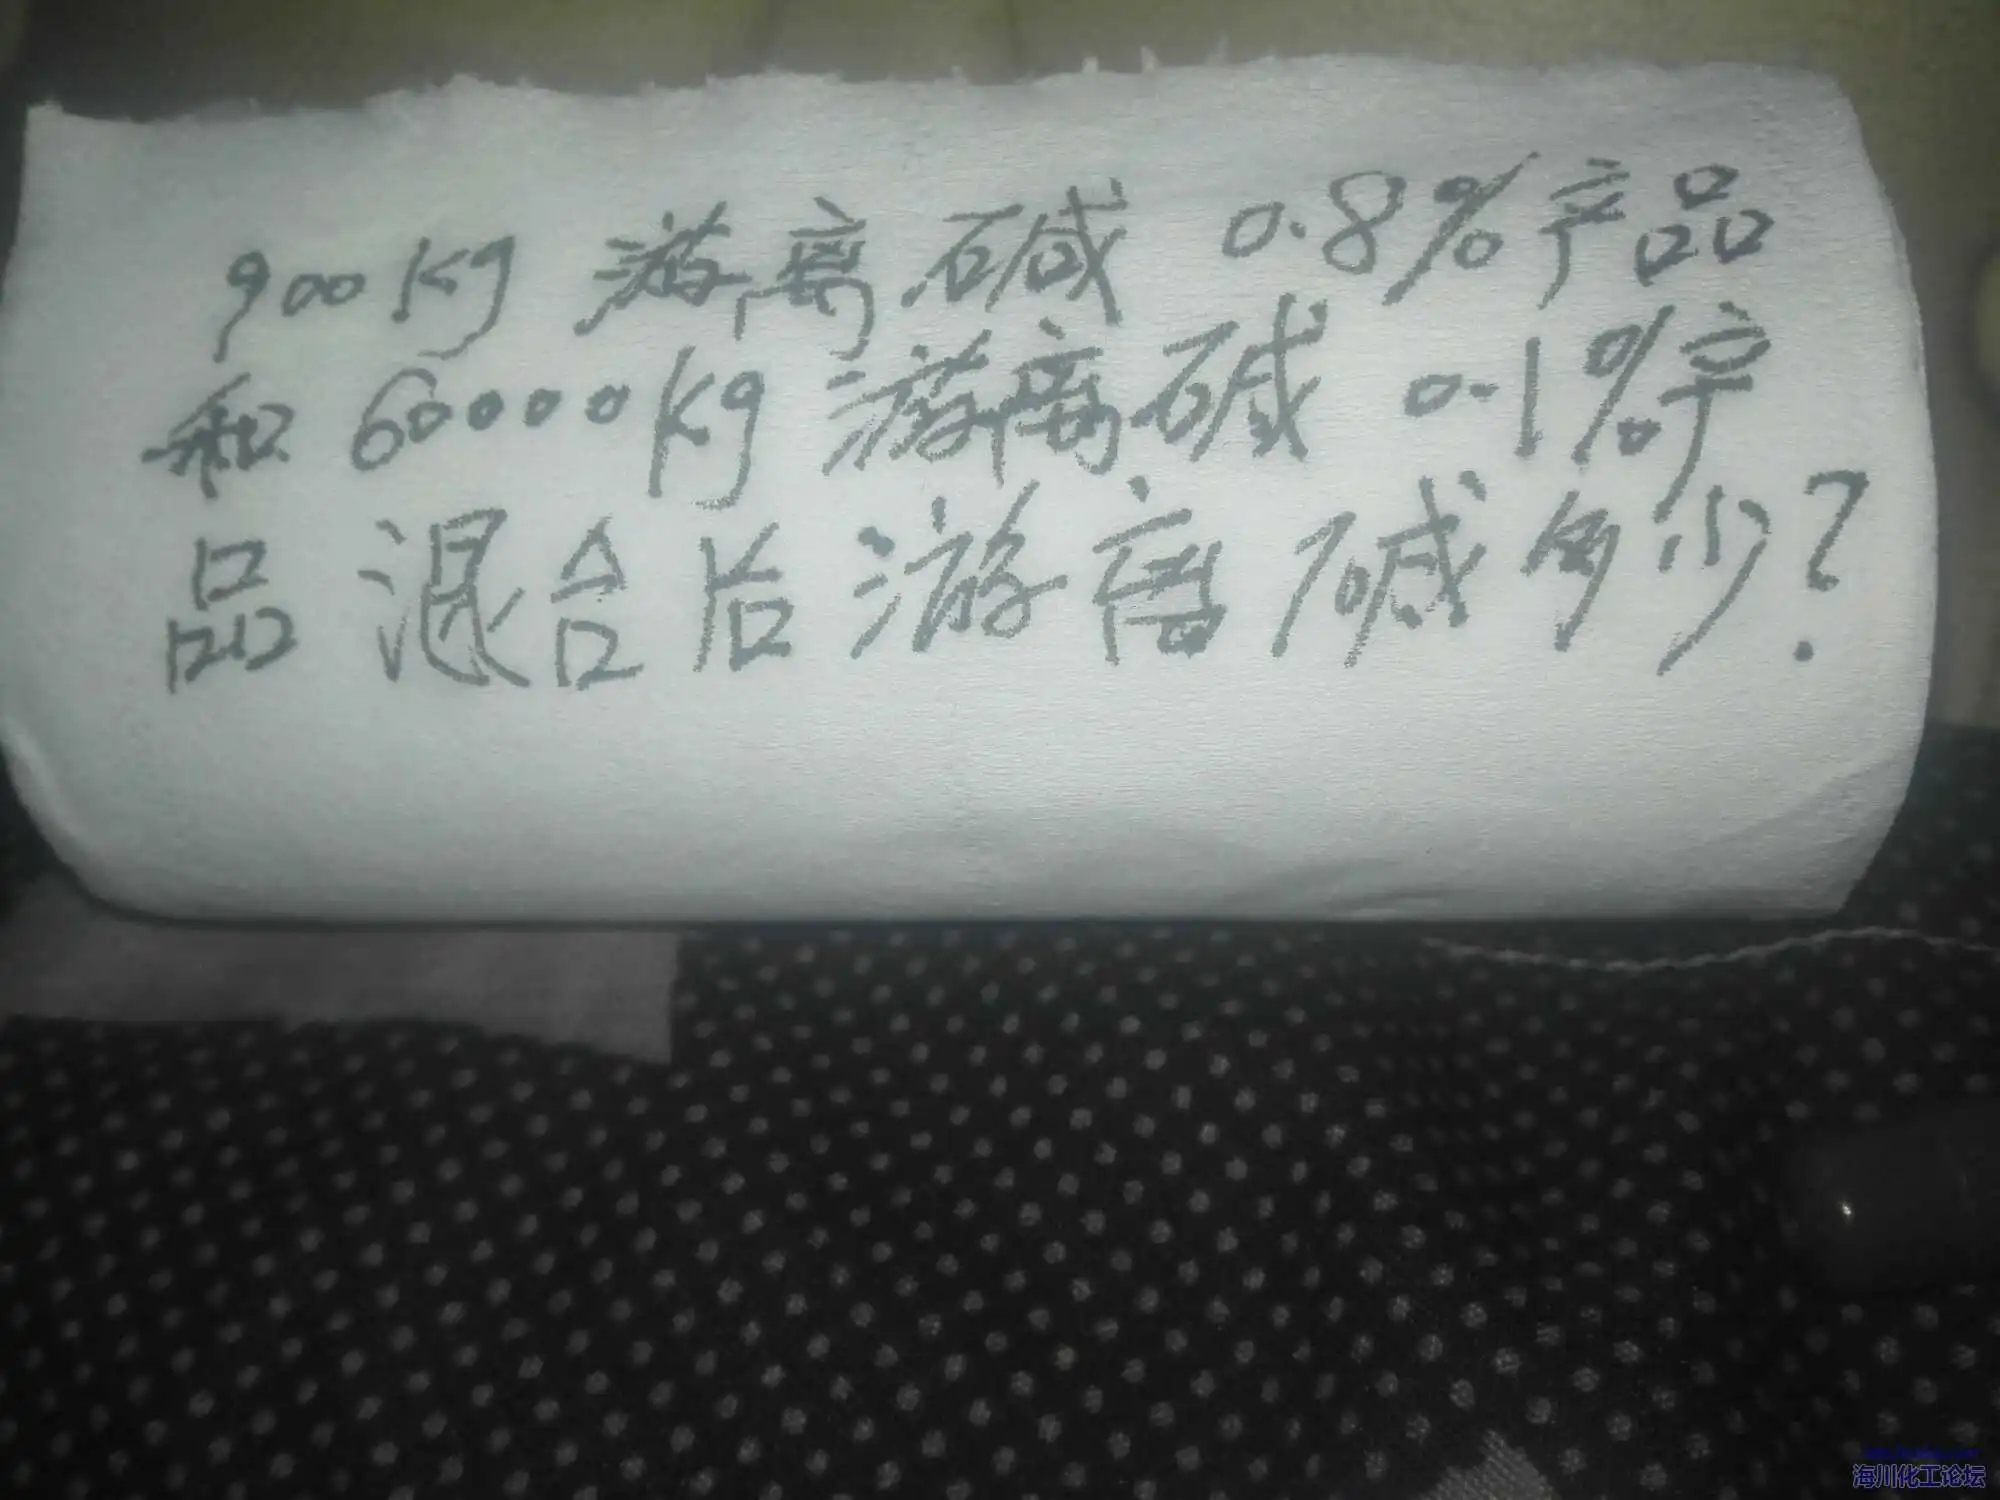 900Kg 游离碱 0.8%产品
和 60000Kg 游离碱 0.1%产
品 混合后游离碱多少?
海川化工论坛